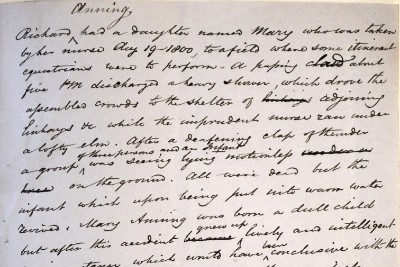 Anning,
Richard, had a daughter named Mary who was taken
by her nurse Aug 19 - 1800, to a field where some itinerant
equestrians were to perform - A passing cloud about
five PM discharged a heavy shower, which drove the
assembled crowds to the shelter of adjoining
linhays &c while the imprudent nurse ran under
a lofty elm. After a deafening clap of thunder
of three persons and an Infant
a group was seeing lying motionless under a
tree on the ground. All were dead but the
infant which upon being put into warm water
revived. Mary Anning was born a dull child
grew up
but after this accident became lively and intelligent
which would have, been conclusive with the